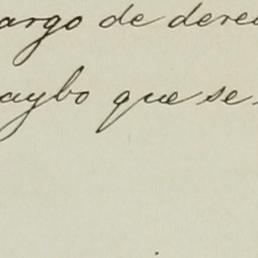 argo de dere
aybo que se